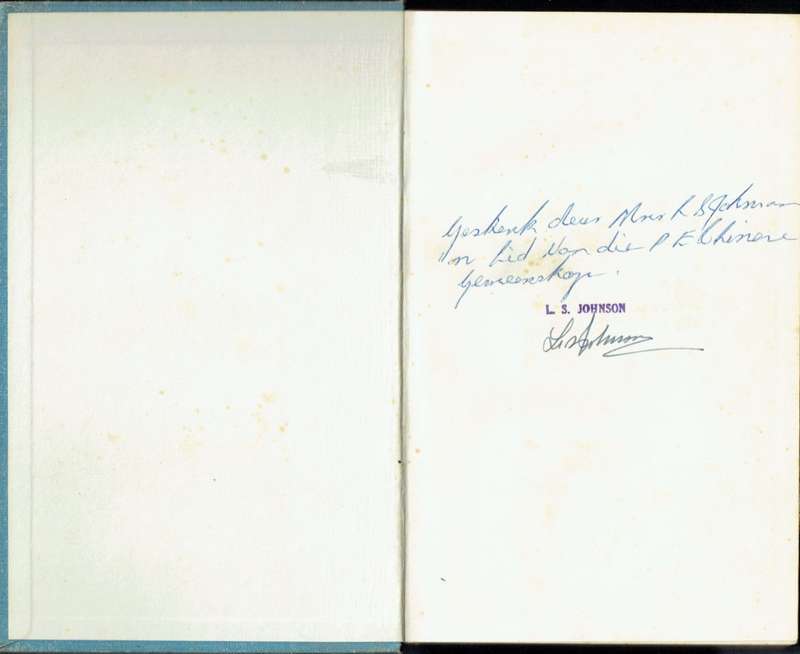 Geskenk deur Mnr L S Johnson
'n Lid van die P E Chinese
Gemeenskap.
L. S. JOHNSON
LSJohnson